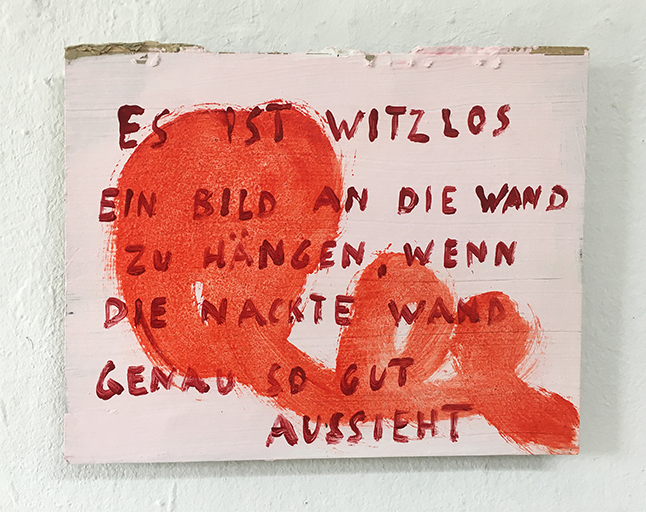 ES IST WITZLOS
EIN BILD AN DIE WAND
ZU HÄNGEN, WENN
DIE NACKTE WAND
GENAU SO GUT
AUSSIEHT